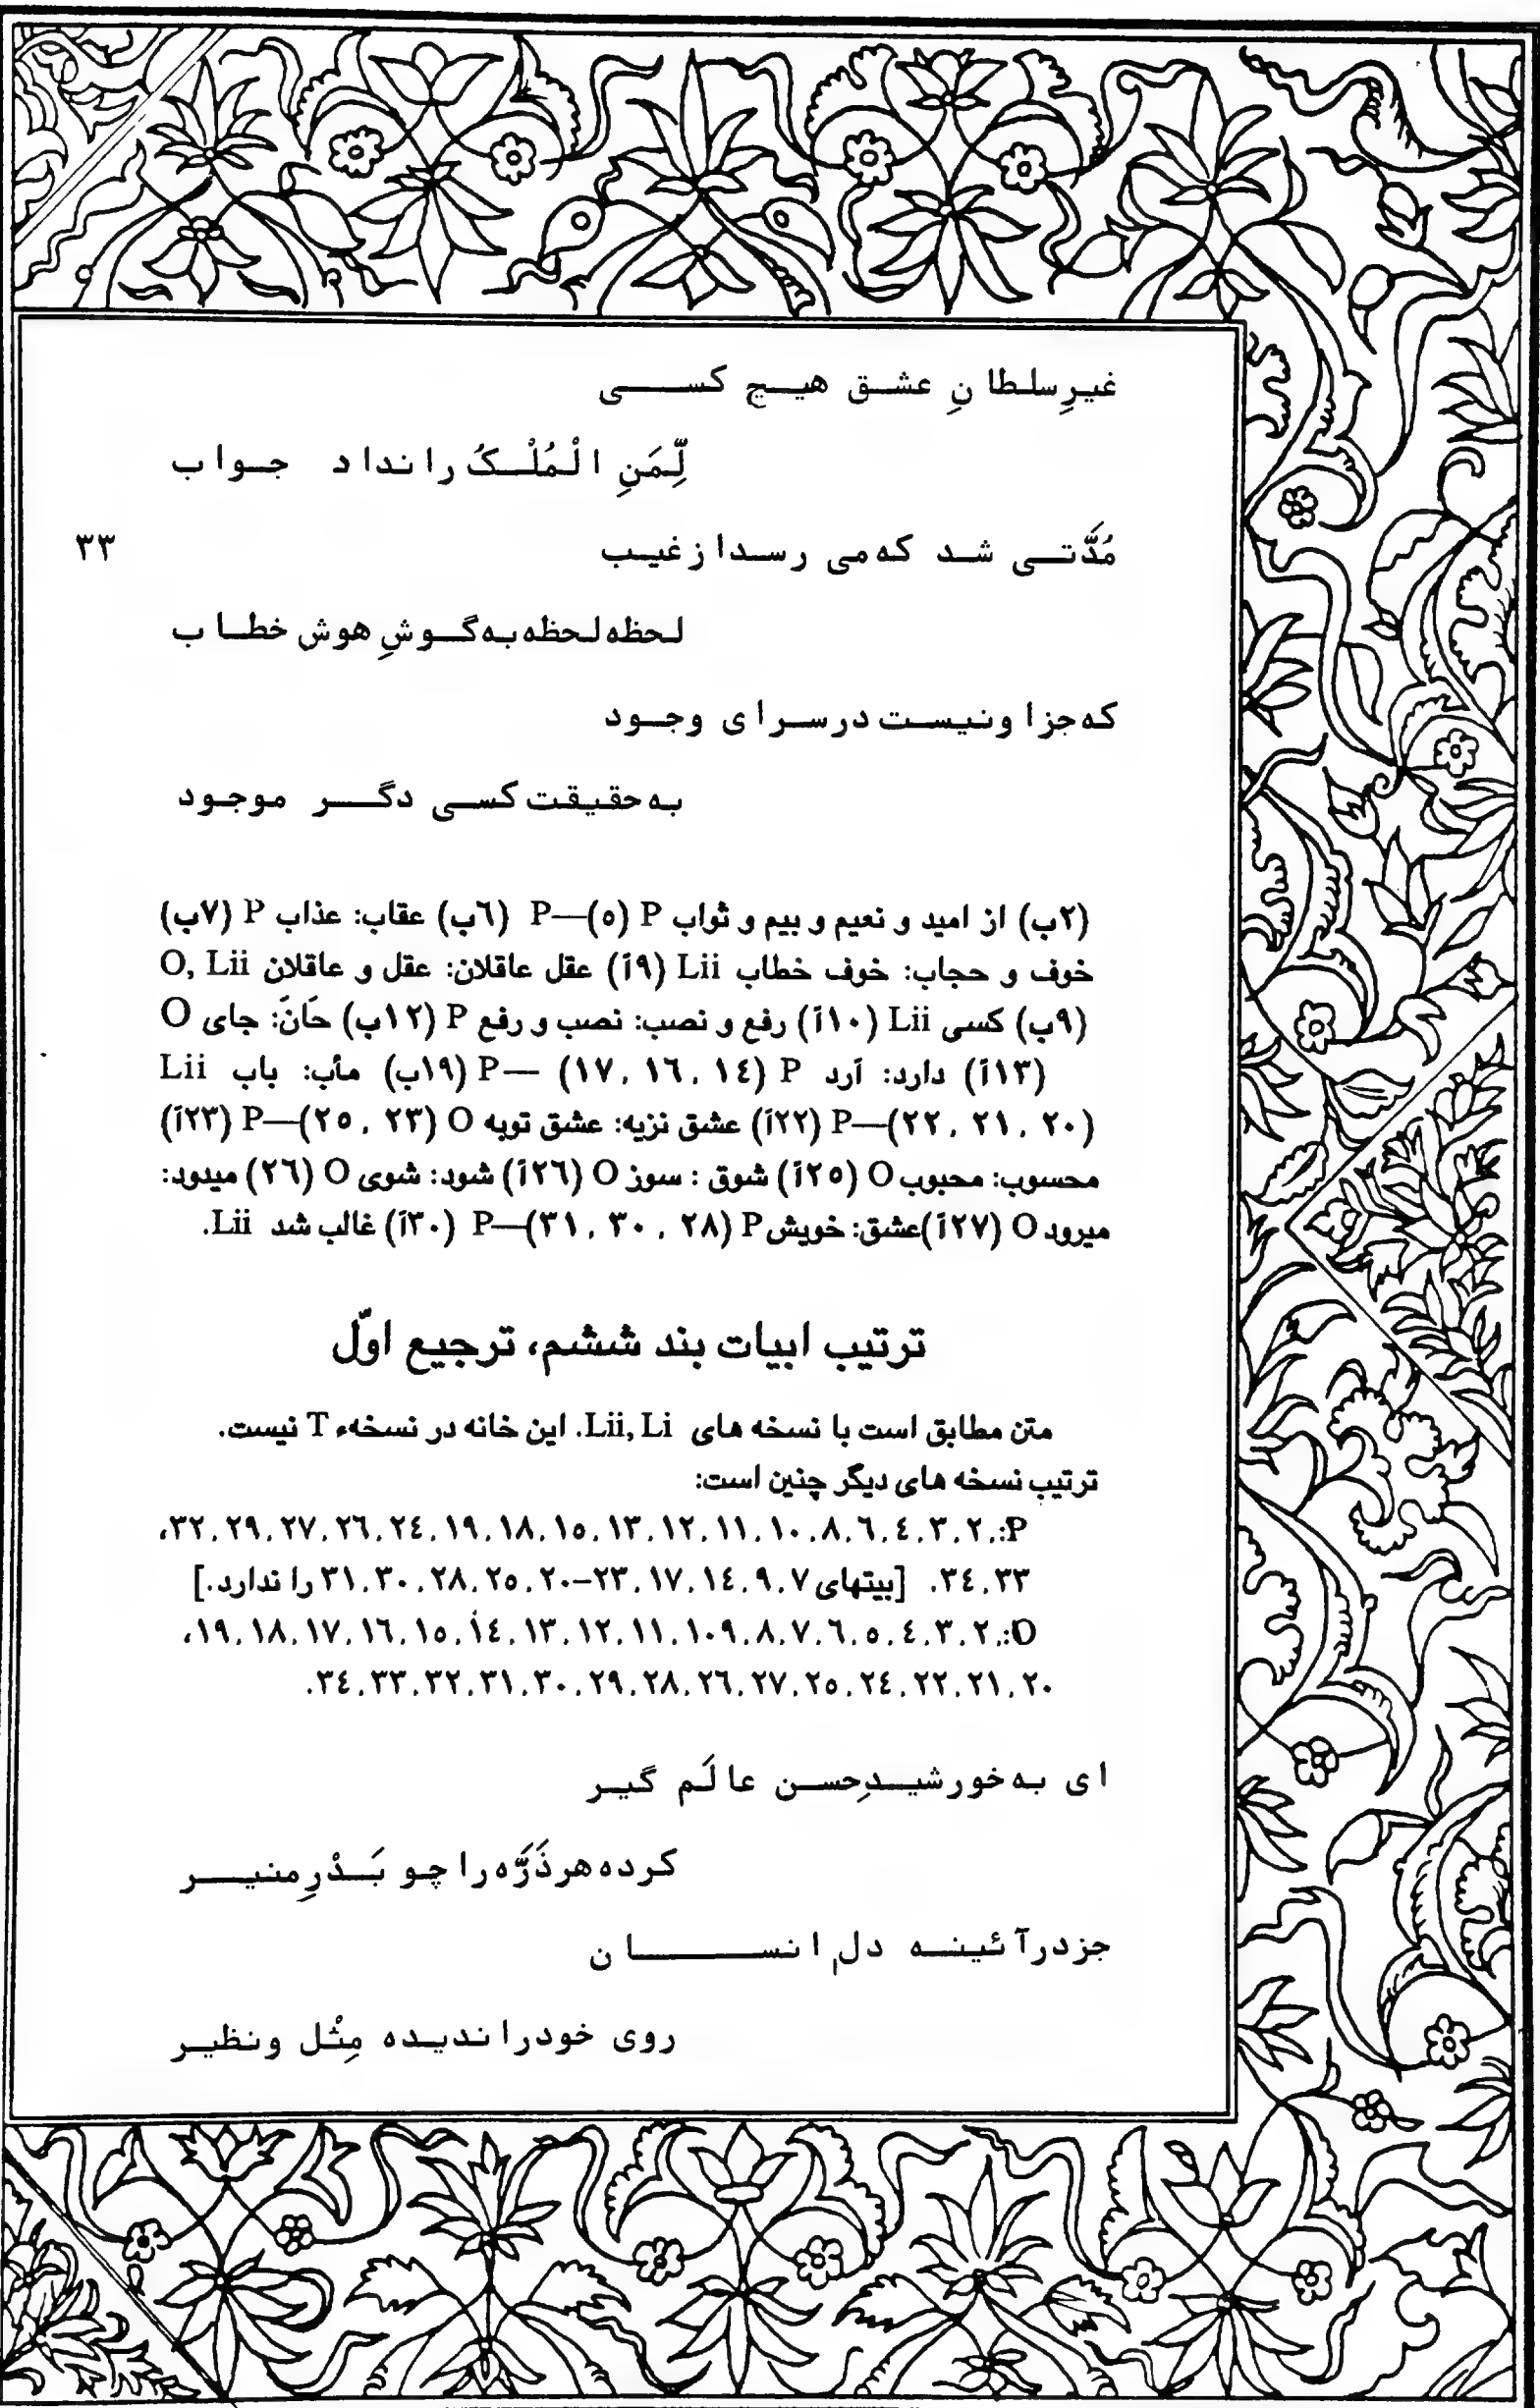 غیرِسلطانِ عشق هیچ کسی
لِّمَنِ الْمُلْکُ را نداد جواب
مُدَّتی شد که می رسد از غیب
۳۳
لحظه لحظه به گوشِ هوش خطاب
که جز او نیست در سرای وجود
به حقیقت کسی دگر موجود
(۲ب) از امید و نعیم و بیم و ثواب P (۵)—P (٦ب) عقاب: عذاب P (۷ب)
خوف و حجاب: خوف خطاب Lii (۹آ) عقل عاقلان: عقل و عاقلان O, Lii
(۹ب) کسی Lii (۱۰آ) رفع و نصب: نصب و رفع P (۱۲ب) حَانَ: جای O
(۱۳آ) دارد: آرد P (۱٤، ۱٦، ۱۷) —P (۱۹ب) مأب: باب Lii
(۲۰، ۲۱، ۲۲)—P (۲۲آ) عشق نزیه: عشق توبه O (۲۳، ۲۵)—P (۲۳آ)
محسوب: محبوب O (۲۵آ) شوق : سوز O (۲٦آ) شود: شوی O (۲٦) میدود:
میرود O (۲۷آ)عشق: خویش P (۲۸، ۳۰، ۳۱)—P (۳۰آ) غالب شد Lii.
ترتیب ابیات بند ششم، ترجیع اوّل
متن مطابق است با نسخه های Lii, Li. این خانه در نسخهء T نیست.
ترتیب نسخه های دیگر چنین است:
P:، ۲، ۳، ٤، ٦، ۸، ۱۰، ۱۱، ۱۲، ۱۳، ۱۵، ۱۸، ۱۹، ۲٤، ۲٦، ۲۷، ۲۹، ۳۲،
۳۳، ۳٤. [بیتهای ۷، ۹، ۱٤، ۱۷، ۲۳–۲۰، ۲۵، ۲۸، ۳۰، ۳۱ را ندارد.]
O:، ۲، ۳، ٤، ۵، ٦، ۷، ۸، ۱۰۹، ۱۱، ۱۲، ۱۳، ۱٤، ۱۵، ۱٦، ۱۷، ۱۸، ۱۹،
۲۰، ۲۱، ۲۲، ۲٤، ۲۵، ۲۷، ۲٦، ۲۸، ۲۹، ۳۰، ۳۱، ۳۲، ۳۳، ۳٤.
ای به خورشیدِ حسن عالَم گیر
کرده هر ذَرَّه را چو بَدْرِ منیر
جز در آئینه دلِ انسان
روی خود را ندیده مِثْل و نظیر